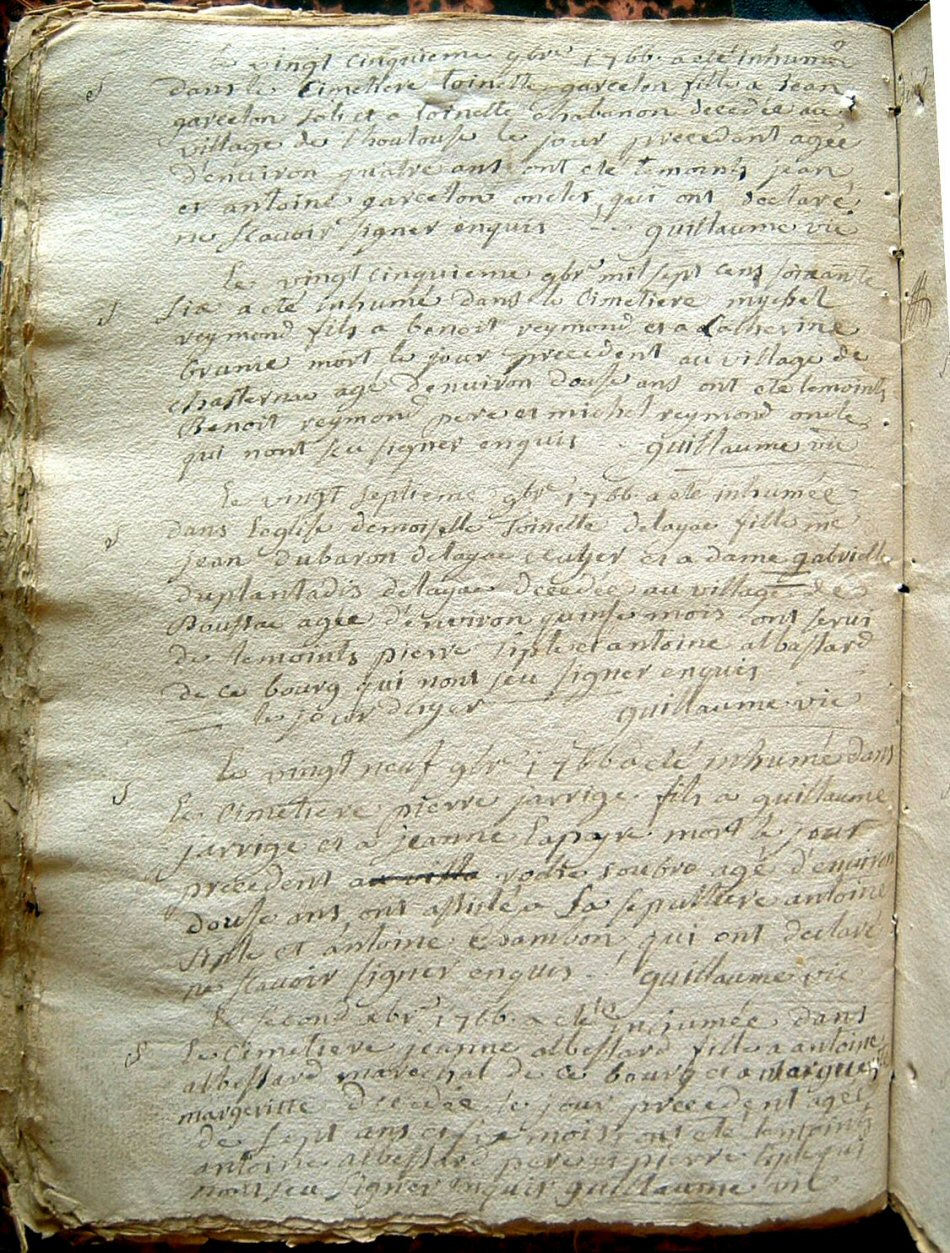 Le vingt cinquieme 9bre 1766 a eté inhumée
S dans le Cimetiere toinette garcelon fille a jean
garcelon et a toinette Chabanon decedée au
village de le jour precedent agée
d'environ quatre ans ont eté temoints jean
et antoine garcelon oncles qui ont declaré
ne scavoir signer enquis guillaume vié
Le vingt cinquieme 9bre mil sept cens soixante
S six a eté inhumé dans le Cimetiere mychel
reymond fils a benoit reymond et a Catherine
brunie mort le jour precedent au village de
chasternae agé d'environ douse ans ont eté temoints
Benoit reymond pere et michel reymond oncle
qui nont sçu signer enquis guillaume vié
Le vingt septieme 9bre 1766 a eté inhumée
S dans l'eglise demoiselle toinette delayae fille a me
jean dubaron delayae ecuyer et a dame gabrielle
duplantadis delayae decedée au village de
Boussae agée d'environ quinse mois ont servi
de temoints pierre siple et antoine albessard
de ce bourg qui nont sçu signer enquis
le jour d'hyer guillaume vié
Le vingt neuf 9bre 1766 a eté inhumé dans
S le Cimetiere pierre jarrige fils a guillaume
jarrige et a jeanne lapeyre mort le jour
precedent au villa soubro agé d'environ
douse ans, ont assisté a La sepulture antoine
siple et antoine Chambon qui ont declaré
ne scavoir signer enquis guillaume vié
Le second xbre 1766 a eté inhumée dans
S le Cimetiere jeanne albessard fille a antoine
albessard marechal de ce bourg et a marguerite
margeritte decedée le jour precedent agée
de sept ans et six mois, ont eté temoints
antoine albessard pere et pierre siple qui
nont sçu signer enquis guillaume vié